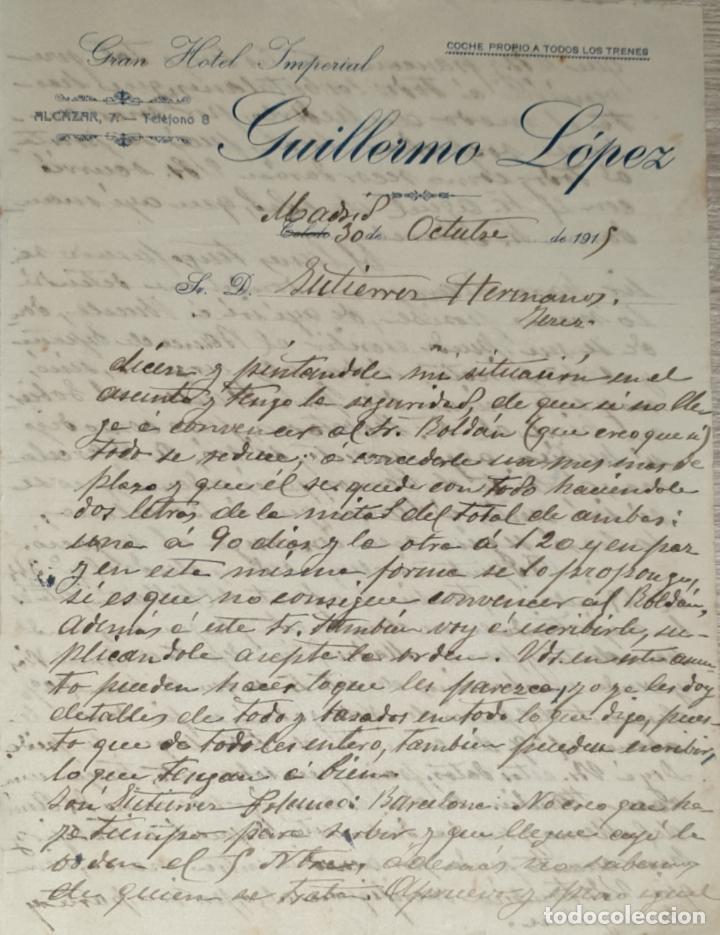 COCHE PROPIO A TODOS LOS TRENES
Gran Hotel Imperial
ALCÁZAR, 7. — Teléfono 8
Guillermo López
Madrid
Toledo 30 de Octubre de 1915
Sr. D. Gutiérrez Hermanos.
Jerez.
dicen y pintandole mi situación en el
asunto y tengo la seguridad, de que si no lle-
ge á convencer al Sr. Roldán (que creo que si)
todo se reduce, á concederle un mes mas de
plazo y que él se quede con todo haciendole
dos letras de la mitad del total de ambas:
una á 90 dias y la otra á 120 y en paz
y en esta misma forma se lo propongo,
si es que no consigue convencer al Roldán,
ademas á este Sr. tambien voy á escribirle, su-
plicándole asepte la orden. Vds. en este asun-
to pueden hacer lo que les parezca, yo ya les doy
detalles de todo y basados en todo lo que digo, pues-
to que de todo les entero, tambien pueden escribir,
lo que tengan á bien.
José Gutiérrez Barcelona. No creo que ha-
ya tiempo para servir y que llegue aqui la
orden el 5 ademas no sabemos
de quien se trata. y igual
todocoleccion.net